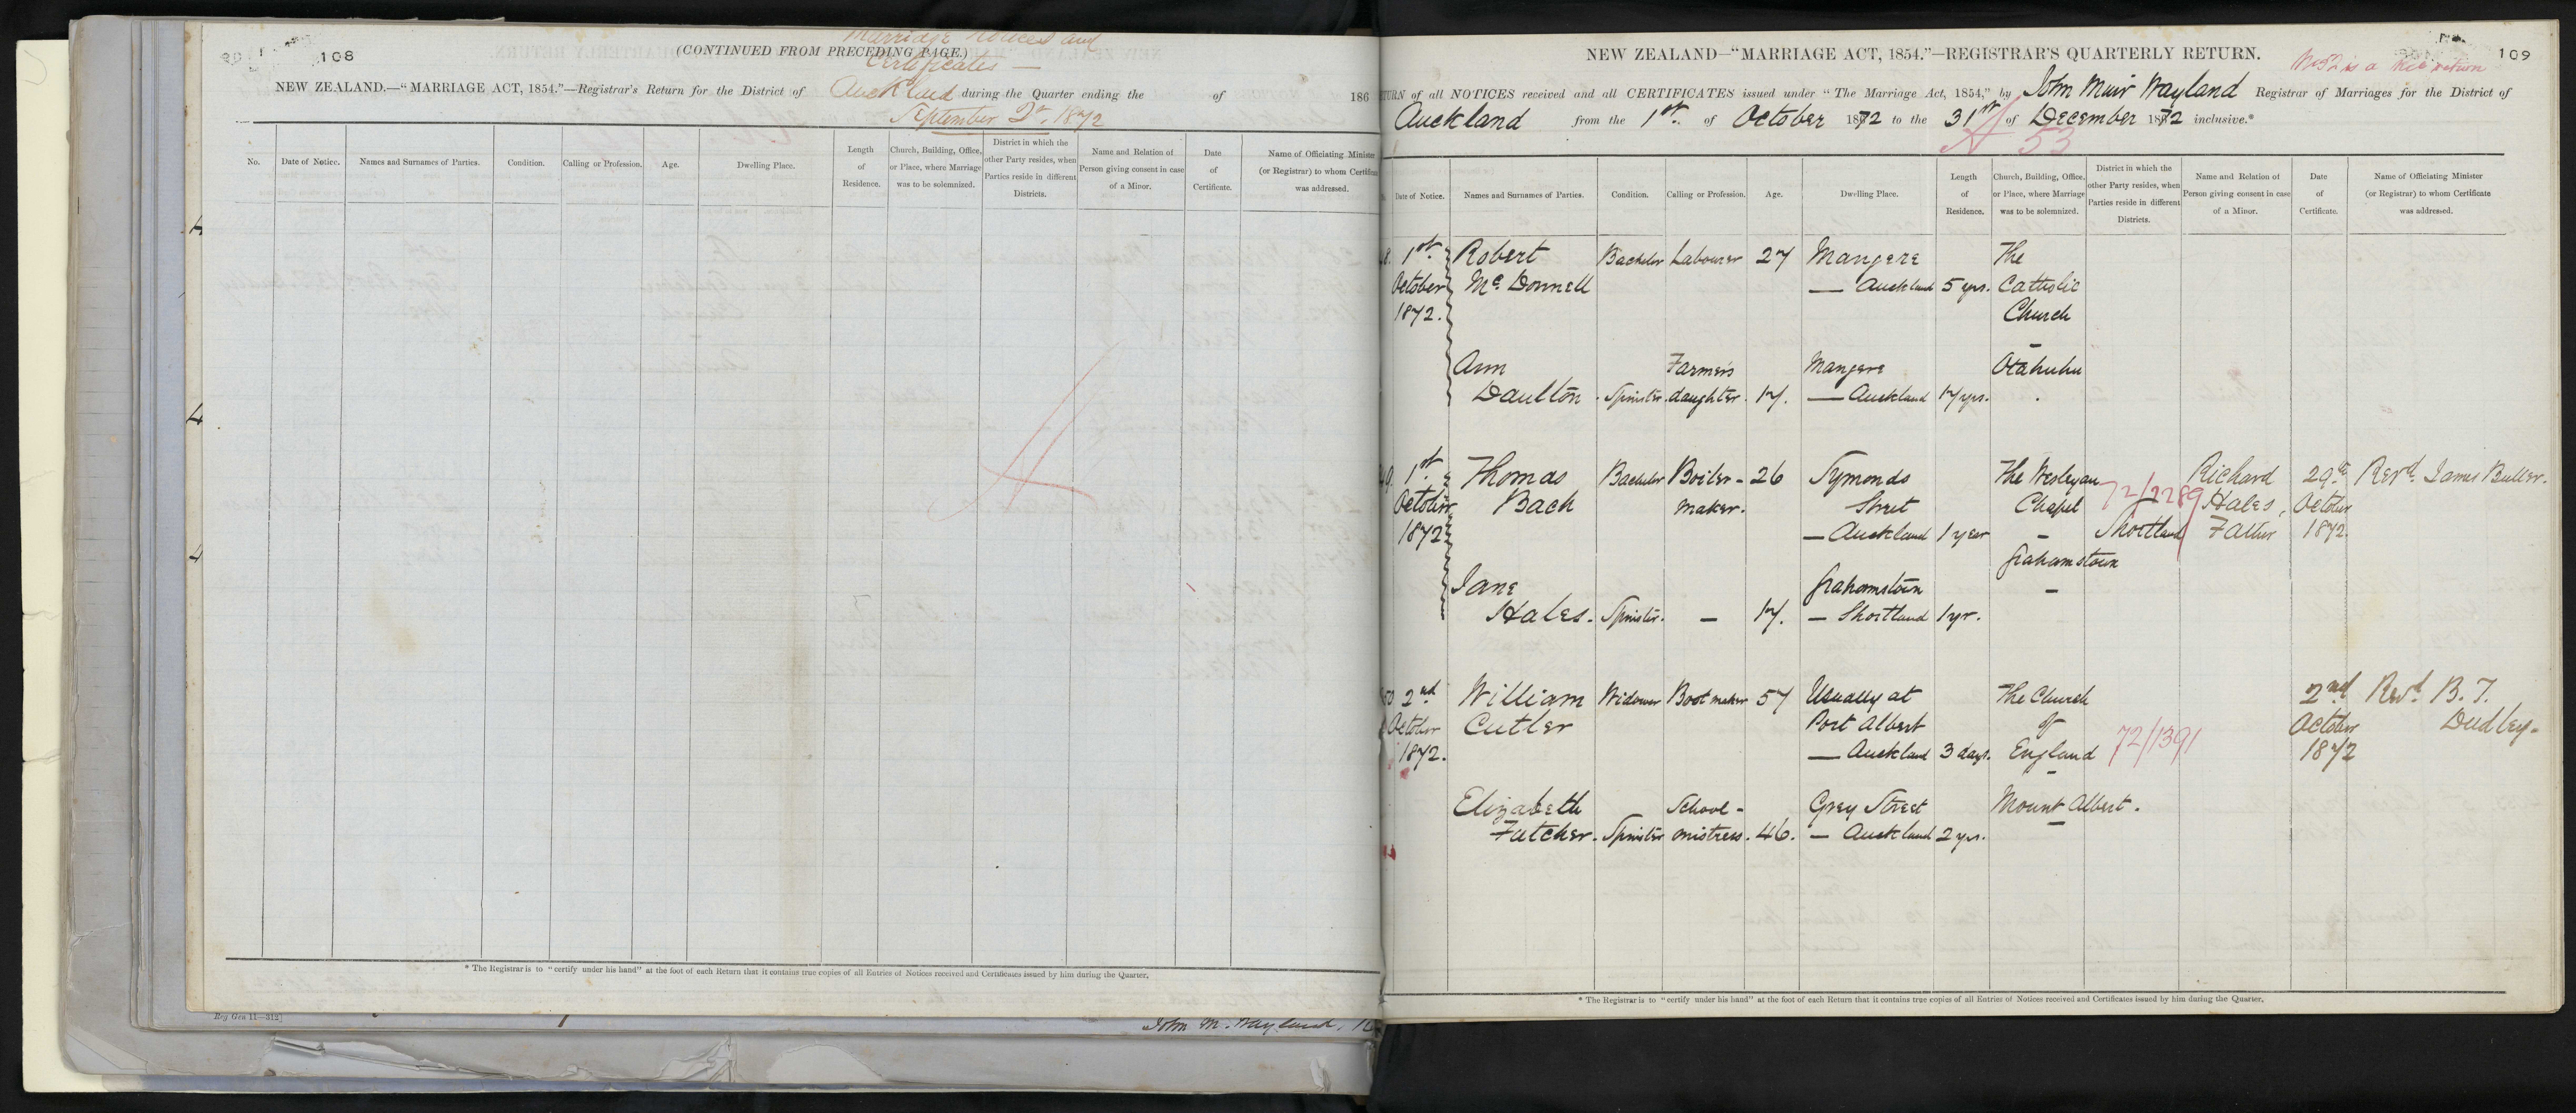 108
Marriage Notices and
(CONTINUED FROM PRECEDING PAGE.)
Certificates —
NEW ZEALAND.—"MARRIAGE ACT, 1854."—Registrar's Return for the District of Auckland during the Quarter ending the of 186
September Qr. 1872
No. Date of Notice. Names and Surnames of Parties. Condition. Calling or Profession. Age. Dwelling Place. Length of Residence. Church, Building, Office, or Place, where Marriage was to be solemnized. District in which the other Party resides, when Parties reside in different Districts. Name and Relation of Person giving consent in case of a Minor. Date of Certificate. Name of Officiating Minister (or Registrar) to whom Certificate was addressed.
* The Registrar is to "certify under his hand" at the foot of each Return that it contains true copies of all Entries of Notices received and Certificates issued by him during the Quarter.
Reg Gen 11—312]
John M. Wayland,
109
NEW ZEALAND—"MARRIAGE ACT, 1854."—REGISTRAR'S QUARTERLY RETURN.
is a return
TURN of all NOTICES received and all CERTIFICATES issued under "The Marriage Act, 1854," by John Muir Wayland Registrar of Marriages for the District of
Auckland from the 1st of October 1872 to the 31st of December 1872 inclusive.*
53
Date of Notice. Names and Surnames of Parties. Condition. Calling or Profession. Age. Dwelling Place. Length of Residence. Church, Building, Office, or Place, where Marriage was to be solemnized. District in which the other Party resides, when Parties reside in different Districts. Name and Relation of Person giving consent in case of a Minor. Date of Certificate. Name of Officiating Minister (or Registrar) to whom Certificate was addressed.
8. 1st Robert Bachelor Labourer 27 Mangere The
October Mc. Donnell — Auckland 5 yrs. Catholic
1872. Church
—
Ann Farmers Mangere Otahuhu
Daulton. Spinster. daughter. 17. — Auckland 17 yrs.
9. 1st Thomas Bachelor Boiler- 26 Symonds The Wesleyan 72/2289 Richard 29th Revd. James Buller.
October Bach maker. Street Chapel Hales, October
1872 — Auckland 1 year — Shortland Father 1872.
Grahamstown
Jane Grahamstown —
Hales. Spinster. — 17. — Shortland 1 yr.
50 2nd William Widower Bootmaker 57 Usually at The Church 2nd Revd. B. T.
October Cutler Port Albert of 72/1391 October Dudley.
1872. — Auckland 3 days. England 1872
—
Elizabeth School- Grey Street Mount Albert.
Futcher. Spinster mistress. 46. — Auckland 2 yrs. —
* The Registrar is to "certify under his hand" at the foot of each Return that it contains true copies of all Entries of Notices received and Certificates issued by him during the Quarter.